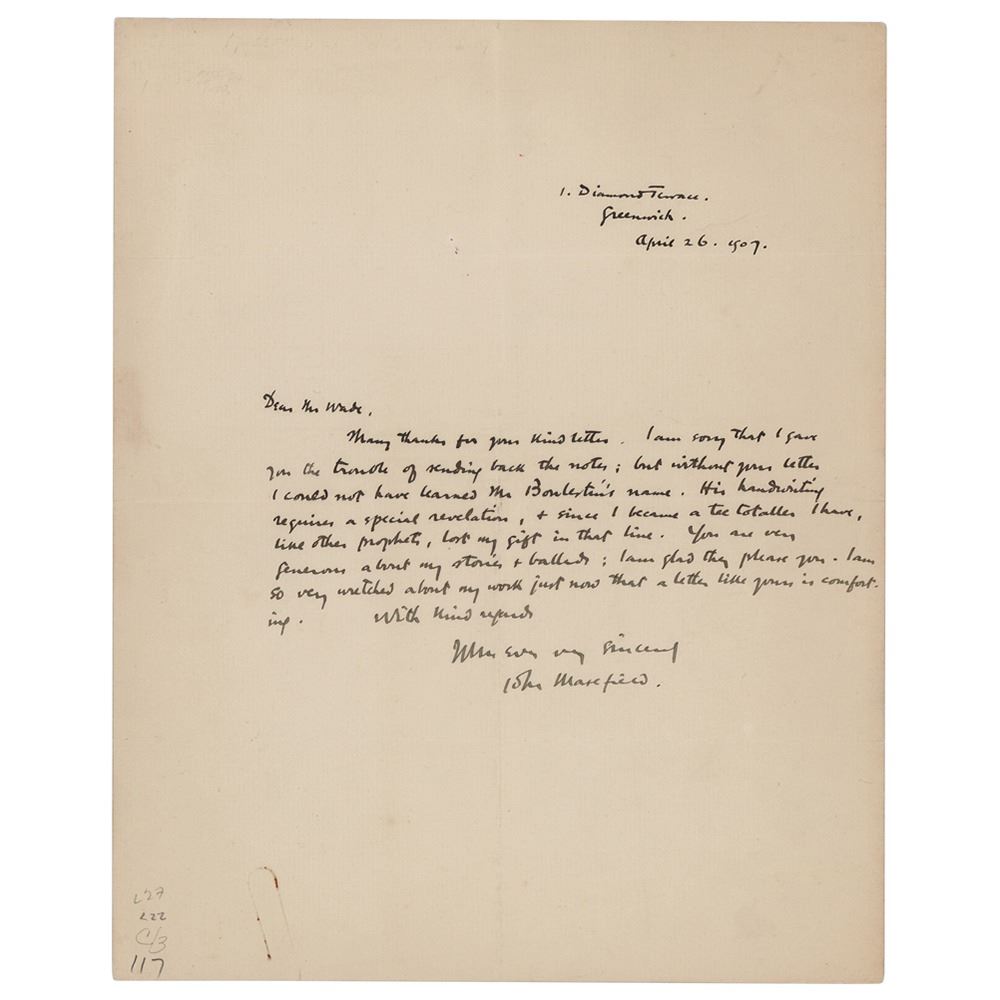 1. Diamond Terrace.
Greenwich.
April 26. 1907.
Dear Mr Wade,
Many thanks for your kind letter. I am sorry that I gave
you the trouble of sending back the notes; but without your letter
I could not have learned Mr Boulestin's name. His handwriting
requires a special revelation, & since I became a tee totaller I have,
like other prophets, lost my gift in that line. You are very
generous about my stories & ballads; I am glad they please you. I am
so very wretched about my work just now that a letter like yours is comfort-
ing. With kind regards
Yours ever very sincerely
John Masefield.
227
222
C/3
117